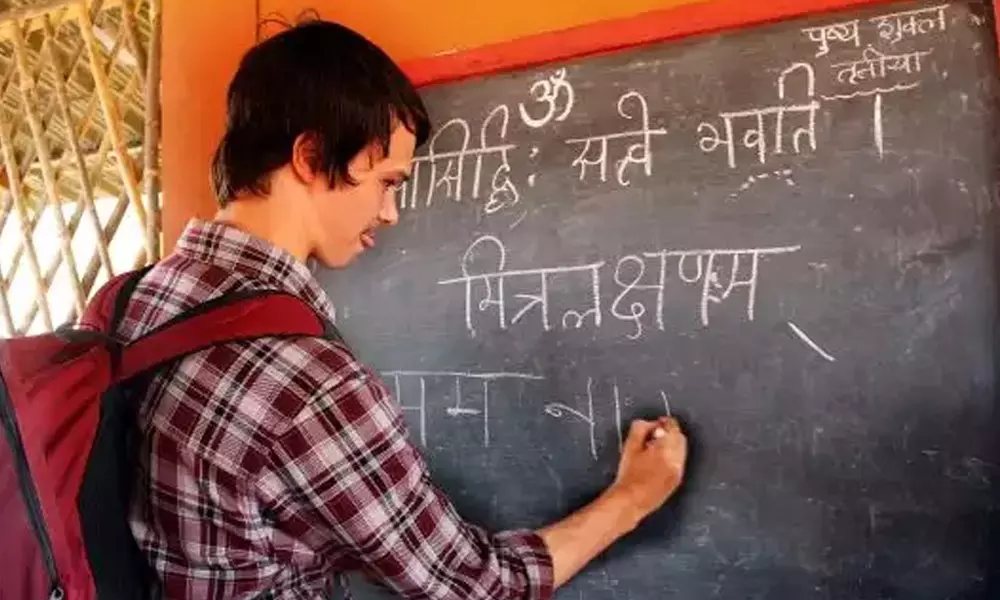 पुष्य शुक्ल
तृतीया
ॐ
सिद्धिः सत्वे भवति ।
मित्रलक्षणम्
मम